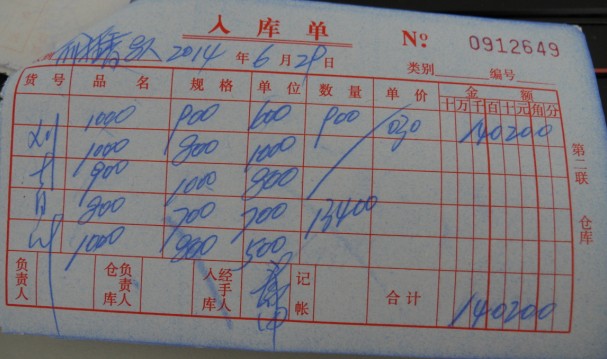 入库单
No 0912649
2014 年 6 月 29 日
类别 编号
货号 品名 规格 单位 数量 单价 金额
十万千百十元角分
1000 900 600 900 140200
1000 800 1000
900 1000 900
800 700 700 13400
1000 800 500
第二联 仓库
负责人 仓库负责人 入库经手人 记帐 合计 140200